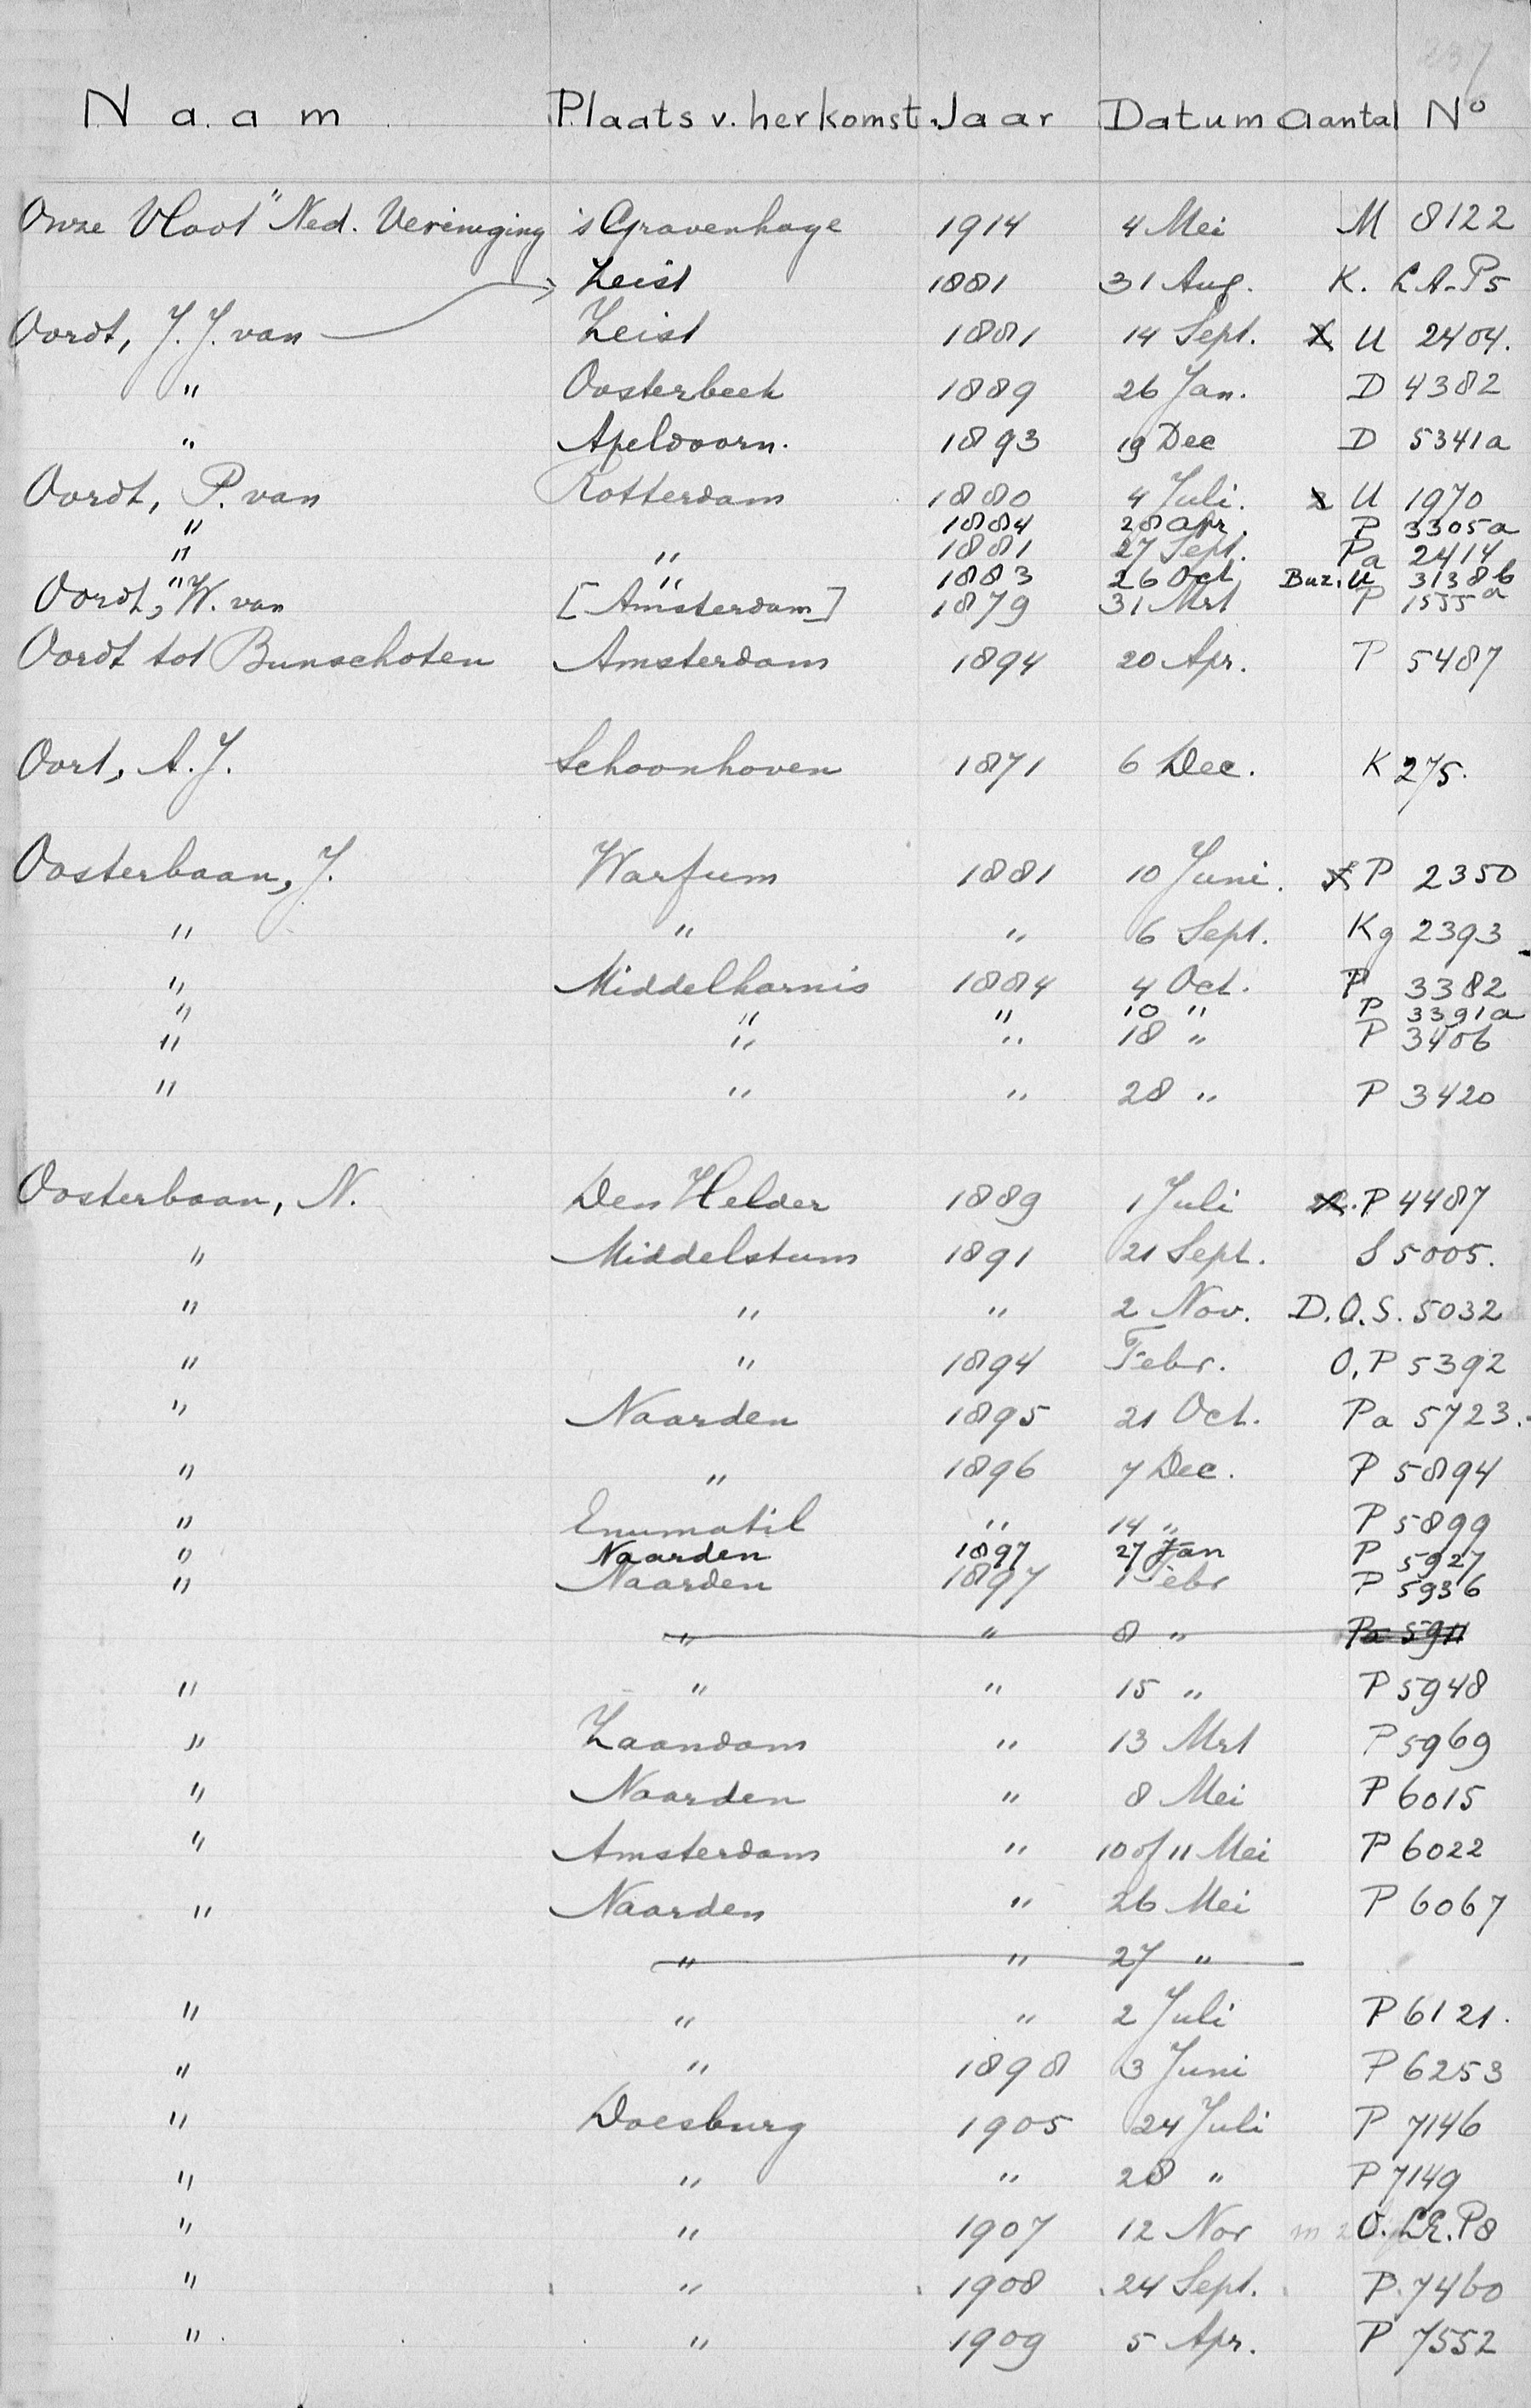 237
Naam Plaats v. herkomst Jaar Datum Aantal No
Onze Vloot" Ned. Vereniging 's Gravenhage 1914 4 Mei M 8122
Zeist 1881 31 Aug. K. L.A-P5
Oordt, J.J. van Zeist 1881 14 Sept. U 2404.
" Oosterbeek 1889 26 Jan. D 4382
" Apeldoorn. 1893 19 Dec D 5341a
Oordt, P. van Rotterdam 1880 4 Juli. 2 U 1970
" 1884 28 apr. P 3305a
" " 1881 27 Sept. Pa 2414
" " 1883 26 Oct Buz. U 3138b
Oordt, W. van [Amsterdam] 1879 31 Mrt P 1555a
Oordt tot Bunschoten Amsterdam 1894 20 Apr. P 5487
Oort, A.J. Schoonhoven 1871 6 Dec. K 275.
Oosterbaan, J. Warfum 1881 10 Juni. P 2350
" " " 6 Sept. Kg 2393
" Middelharnis 1884 4 Oct. P 3382
" " " 10 " P 3391a
" " " 18 " P 3406
" " " 28 " P 3420
Oosterbaan, N. Den Helder 1889 1 Juli P 4487
" Middelstum 1891 21 Sept. S 5005.
" " " 2 Nov. D.O.S. 5032
" " 1894 Febr. O,P 5392
" Naarden 1895 21 Oct. Pa 5723.
" " 1896 7 Dec. P 5894
" Enumatil " 14 " P 5899
" Naarden 1897 27 Jan P 5927
" Naarden 1897 1 Febr P 5936
" " 8 " Pa
" " " 15 " P 5948
" Zaandam " 13 Mrt P 5969
" Naarden " 8 Mei P 6015
" Amsterdam " 10 of 11 Mei P 6022
" Naarden " 26 Mei P 6067
" " 27 "
" " " 2 Juli P 6121.
" " 1898 3 Juni P 6253
" Doesburg 1905 24 Juli P 7146
" " " 28 " P 7149
" " 1907 12 Nov O. P8
" " 1908 24 Sept. P. 7460
" " 1909 5 Apr. P 7552